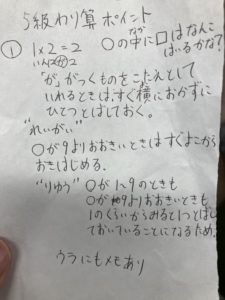 5級わり算 ポイント
① 1×2=2 ○の中に□はなんこ
なか
いんにが2 はいるかな?
「が」がつくものをこたえとして
いれるときは、すぐ横におかずに
ひとつとばしておく。
"れいがい"
○が9よりおおきいときはすぐよこから
おきはじめる。
"りゆう" ○が1~9のときも
○が9よりおおきいときも
1のくらいからみると1つとばし
ておいていることになるため。
ウラにもメモあり